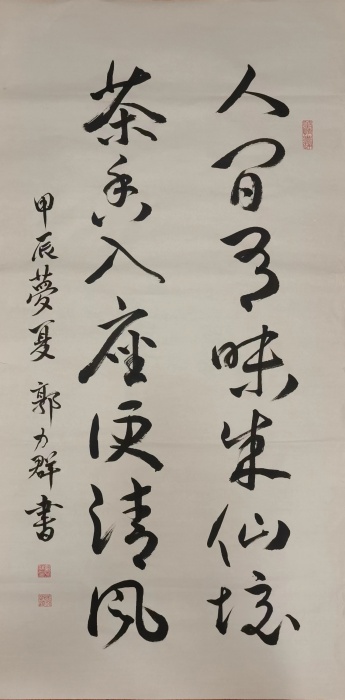 人间有味成仙境
茶香入座便清风
甲辰夢夏 郭力群書